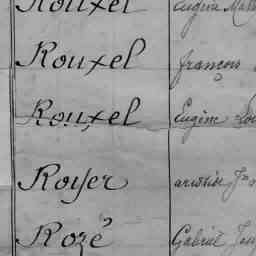 Rouxel Eugène
Rouxel françois
Rouxel Eugène
Royer aristide
Rozé Gabriel